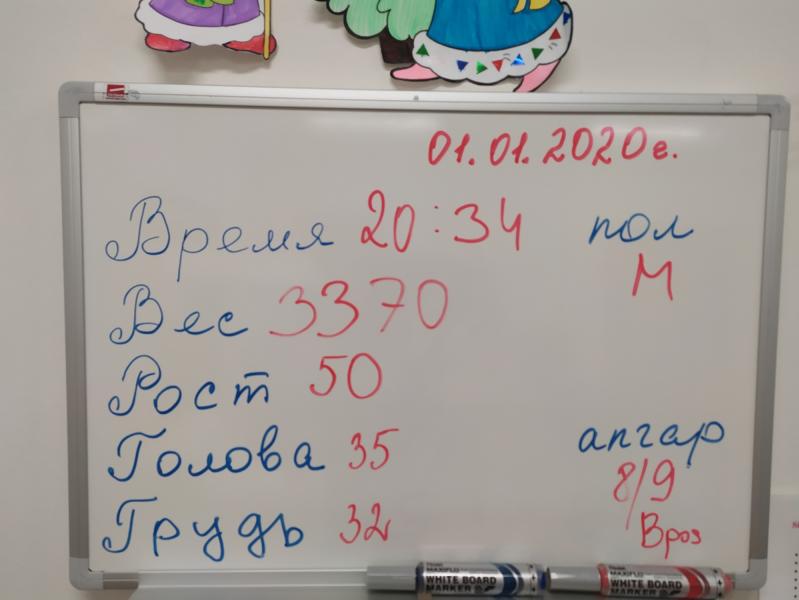 01.01.2020г.
Время 20:34
пол
М
Вес 3370
Рост 50
Голова 35
апгар
8/9
Грудь 32
Вроз
Pentel
MAXIFLO
WHITE BOARD
MARKER
Pentel
MAXIFLO
WHITE BOARD
MARKER